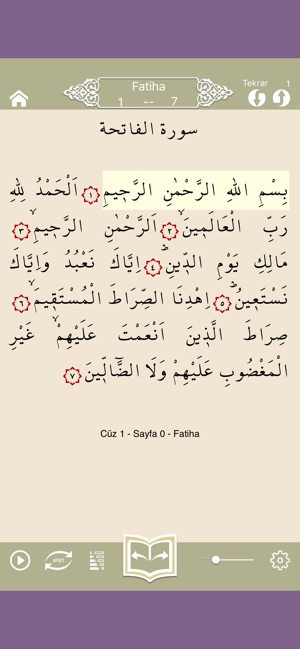 Fatiha
1 -- 7
Tekrar 1
1
سورة الفاتحة
بِسْمِ اللهِ الرَّحْمٰنِ الرَّحٖيمِ ﴿١﴾ اَلْحَمْدُ لِلّٰهِ
رَبِّ الْعَالَمٖينَۙ ﴿٢﴾ اَلرَّحْمٰنِ الرَّحٖيمِۙ ﴿٣﴾
مَالِكِ يَوْمِ الدّٖينِؕ ﴿٤﴾ اِيَّاكَ نَعْبُدُ وَاِيَّاكَ
نَسْتَعٖينُؕ ﴿٥﴾ اِهْدِنَا الصِّرَاطَ الْمُسْتَقٖيمَۙ ﴿٦﴾
صِرَاطَ الَّذٖينَ اَنْعَمْتَ عَلَيْهِمْۙ غَيْرِ
الْمَغْضُوبِ عَلَيْهِمْ وَلَا الضَّٓالّٖينَ ﴿٧﴾
Cüz 1 - Sayfa 0 - Fatiha
AYET